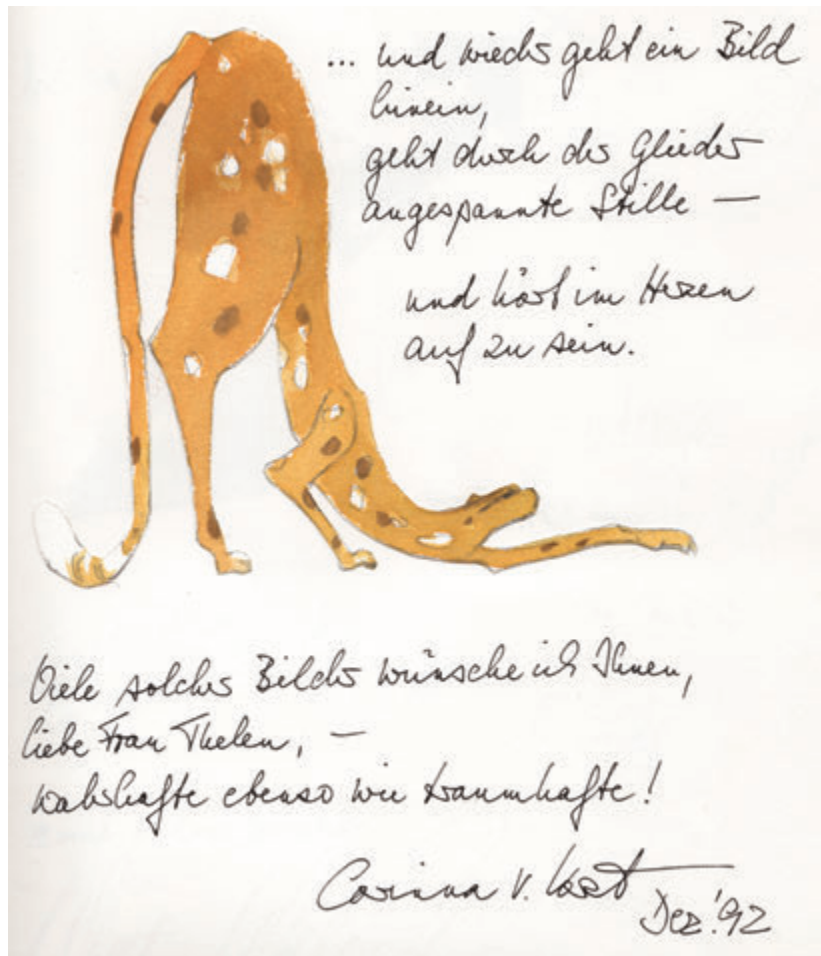 ... und wieder geht ein Bild
hinein,
geht durch der Glieder
angespannte Stille —
und hört im Herzen
auf zu sein.
Viele solcher Bilder wünsche ich Ihnen,
liebe Frau Thelen, —
wahrhafte ebenso wie traumhafte!
Corinna v.
Dez. '92